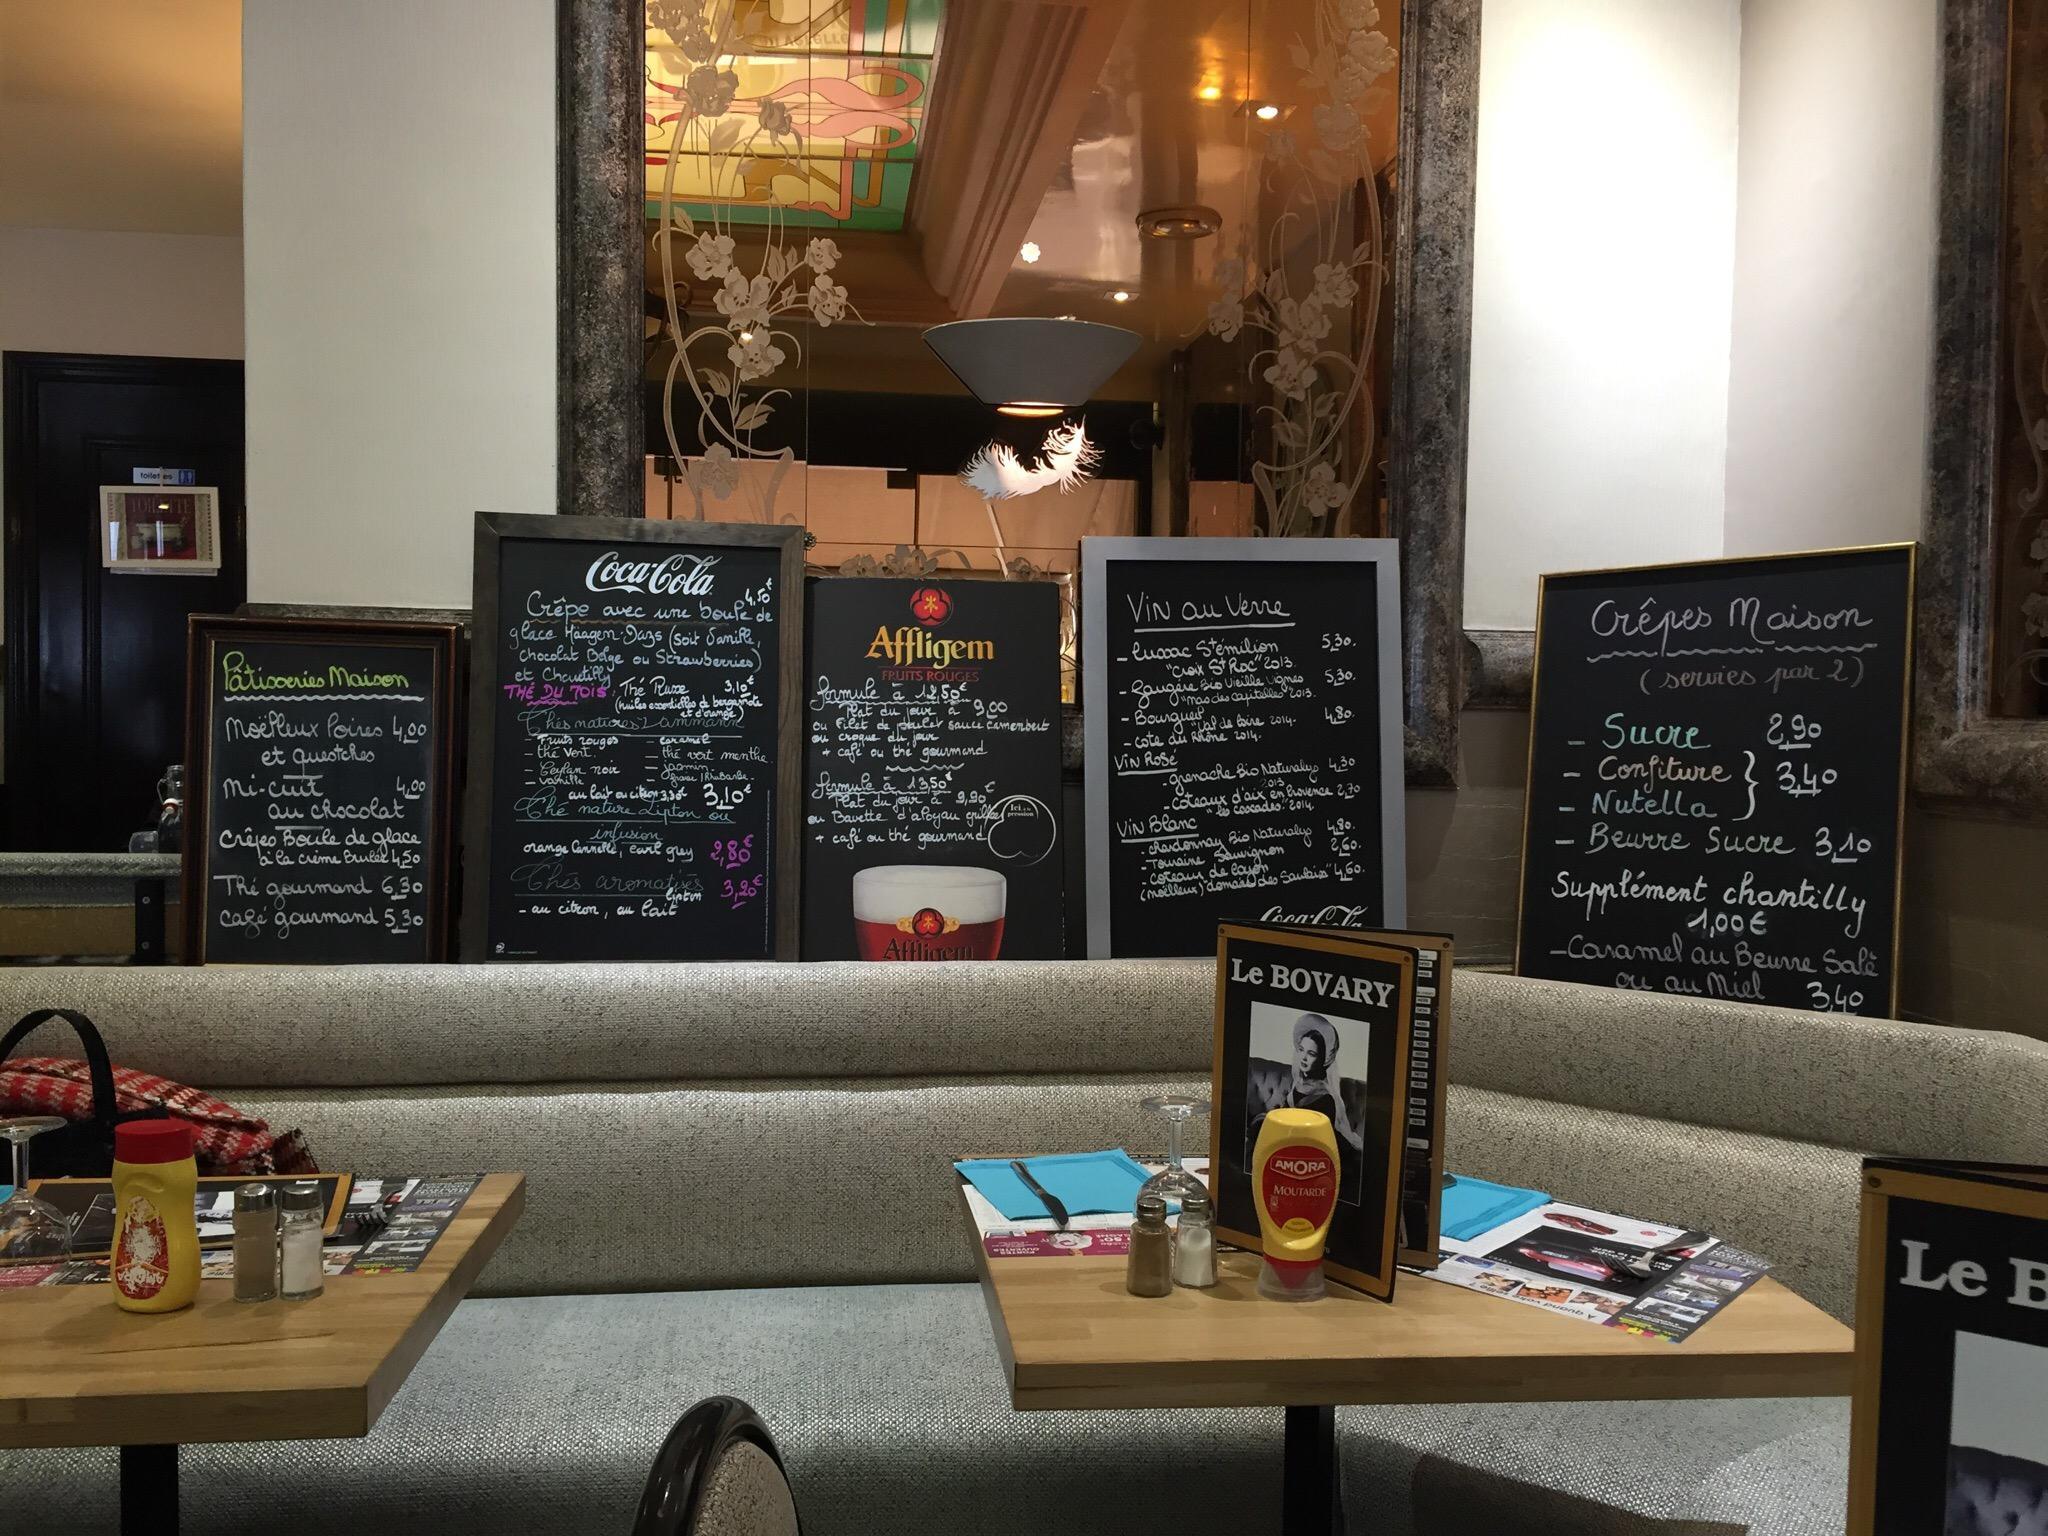 toilettes
TOILETTE
Pâtisseries Maison
Moëlleux Poires 4,00
et questches
Mi-cuit 4,00
au chocolat
Crêpes Boule de glace
à la crème brulée 4,50
Thé gourmand 6,30
Café gourmand 5,30
Coca-Cola
4,50€
Crêpe avec une boule de
glace Häagen-Dazs (soit Vanille,
chocolat Belge ou Strawberries)
et Chantilly
THÉ DU MOIS: Thé Russe 3,10€
(huiles essentielles de bergamote
et d'orange)
Thés natures Dammann
- fruits rouges - caramel
- thé vert - thé vert menthe
- Ceylan noir - jasmin
- vanille - fraise / Rhubarbe
au lait ou citron 3,30€ 3,10€
Thé nature Lipton ou
infusion
orange Cannelle, earl grey 2,80€
Thés aromatisés 3,20€
lipton
- au citron, au lait
Affligem
FRUITS ROUGES
formule à 12,50€
Plat du jour à 9,00
ou Filet de poulet sauce camembert
ou croque du jour
+ café ou thé gourmand
formule à 13,50€
Plat du jour à 9,90€
ou Bavette d'aloyau grillée
+ café ou thé gourmand
Ici en
pression
Affligem
Vin au Verre
- Lussac St émilion 5,30.
"Croix St Roc" 2013.
- Gaugère Bio Vieille Vignes 5,30.
"mas des capitelles" 2013.
- Bourgueil 4,80.
"Val de Loire" 2014.
- cote du Rhône 2014.
Vin Rosé
- grenache Bio Naturalys 4,30
2013
- coteaux d'aix en Provence 2,70
"les cascades" 2014.
Vin Blanc
- chardonnay Bio Naturalys 4,80.
- Touraine Sauvignon 2,60.
- coteaux de Layon
(moëlleux) "domaine des Saulaies" 4,60.
Coca-Cola
Crêpes Maison
(servies par 2)
- Sucre 2,90
- Confiture } 3,40
- Nutella
- Beurre Sucre 3,10
Supplément chantilly
1,00€
- Caramel au Beurre Salé
ou au Miel 3,40
Le BOVARY
AMORA
MOUTARDE
AMORA
Le B